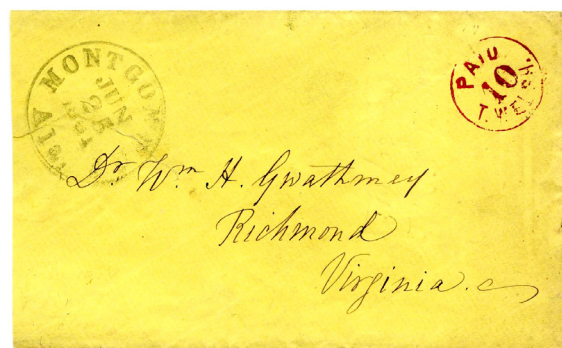 MONTGOMERY Ala
JUN
25
1861
PAID
10
T. WELSH.
Dr. Wm H. Gwathmey
Richmond
Virginia.